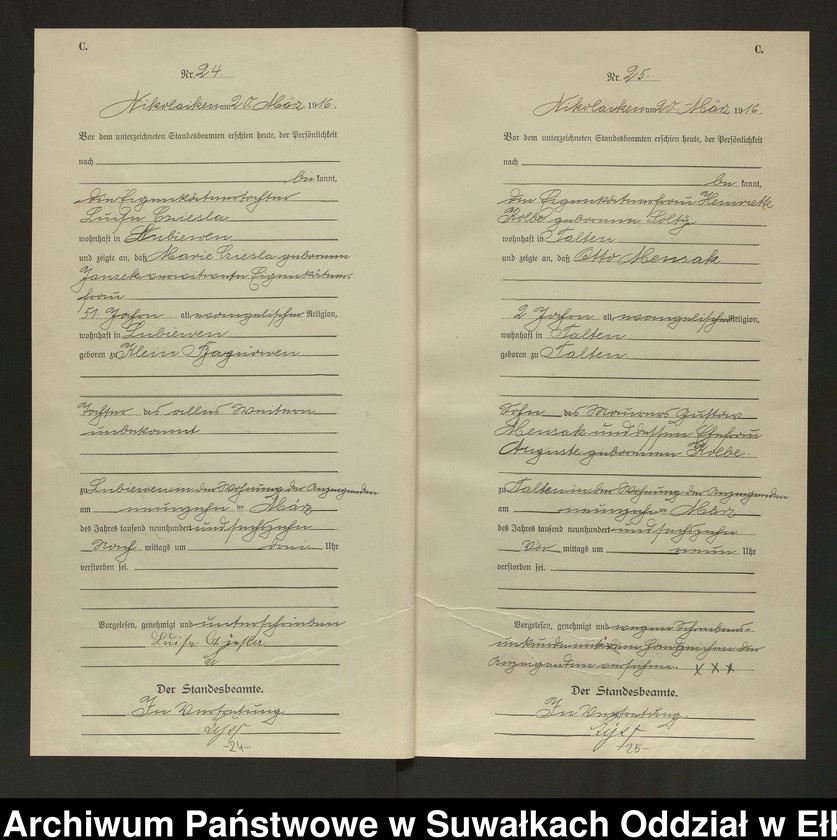 C.
Nr. 24.
Nikolaiken am 20. März 1916.
Vor dem unterzeichneten Standesbeamten erschien heute, der Persönlichkeit
nach
be kannt,
die Eigenkätnertochter
Luise Cziesla
wohnhaft in Lubiewen
und zeigte an, daß Marie Cziesla geborenen
verwitwete Eigenkätner-
frau
51 Jahren alt, evangelischer Religion,
wohnhaft in Lubiewen
geboren zu Klein
Tochter des alles Weitere
unbekannt
zu Lubiewen in der Wohnung der Anzeigenden
am neunzehn ten März
des Jahres tausend neunhundert und sechszehn
Nach mittags um drei Uhr
verstorben sei.
Vorgelesen, genehmigt und unterschrieben
Luise
Der Standesbeamte.
In Vertretung
-24-
C.
Nr. 25.
Nikolaiken am 20. März 1916.
Vor dem unterzeichneten Standesbeamten erschien heute, der Persönlichkeit
nach
be kannt,
die Eigenkätnerfrau Henriette
Kolbe geborenen
wohnhaft in Talten
und zeigte an, daß Otto Mensak
2 Jahren alt, evangelischer Religion,
wohnhaft in Talten
geboren zu Talten
Sohn des Maurers Gustav
Mensak und dessen Ehefrau
Auguste geborenen Kolbe.
zu Talten in der Wohnung der Anzeigenden
am neunzehn ten März
des Jahres tausend neunhundert und sechszehn
Vor mittags um neun Uhr
verstorben sei.
Vorgelesen, genehmigt und wegen Schreibens-
unkunde mit dem Handzeichen der
Anzeigenden versehen. X X X
Der Standesbeamte.
In Vertretung.
-25-
Archiwum Państwowe w Suwałkach Oddział w Eł